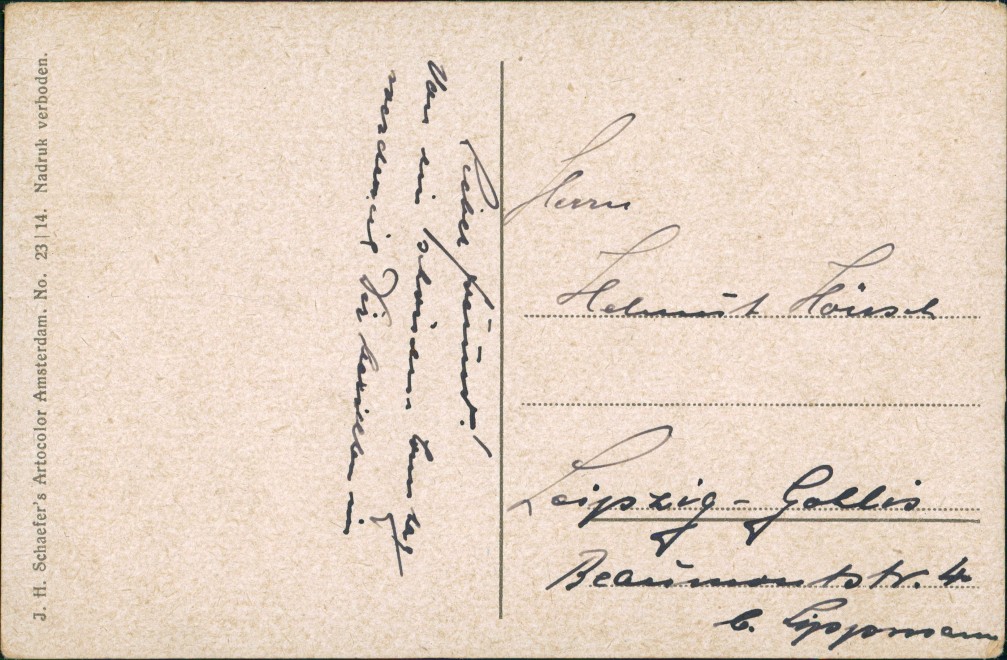 J. H. Schaefer's Artocolor Amsterdam. No. 23|14. Nadruk verboden.
Lieber Freund!
Von ein schönem
Dir
Herrn
Helmut Hönsch
Leipzig-Gohlis
Beaumontstr. 4
b. Lippmann